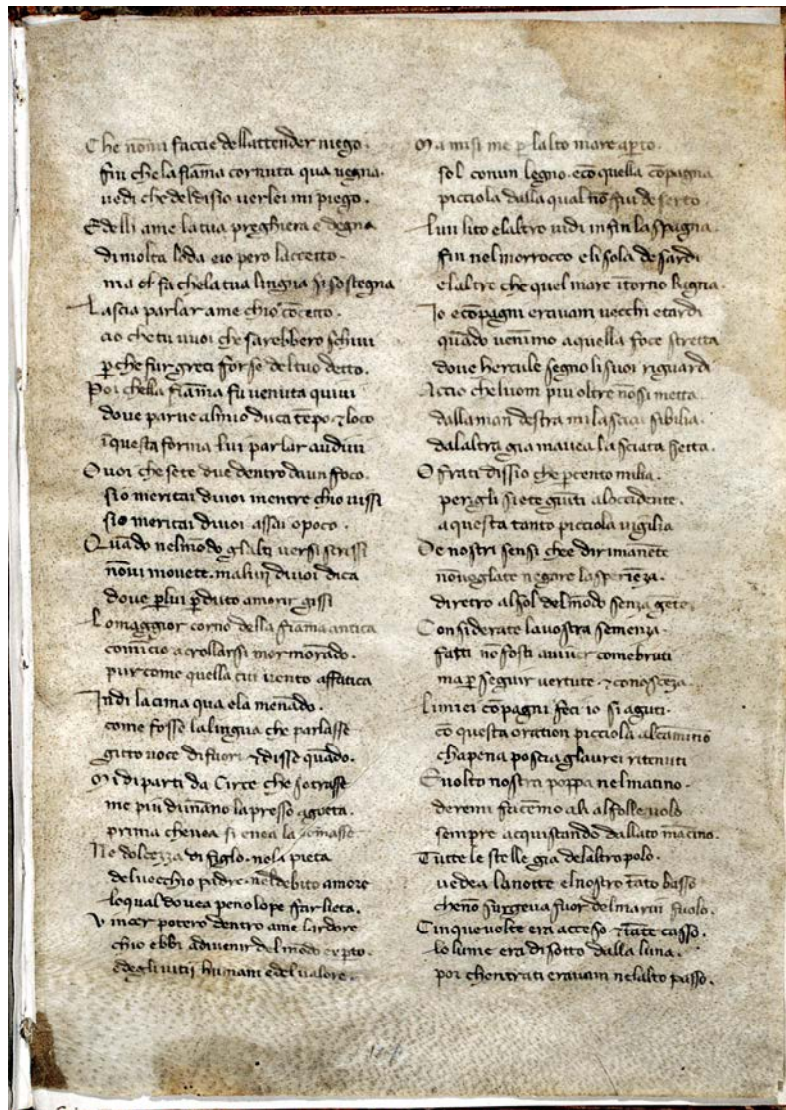 Che nōmi faccie dellattender niego.
fin che la fiāma cornuta qua vegna.
vedi che del disio verlei mi piego.
Edelli ame la tua preghiera e degna
di molta loda eio pero laccetto.
ma el fa chela tua lingua si sostegna
Lascia parlar ame chio cōcetto.
cio che tu vuoi che sarebbero schiui
p̱che fur greci forse del tuo detto.
Poi chella fiāma fu venuta quiui
dove parve almio duca tēpo ⁊ loco
ī questa forma lui parlar audiui
O uoi che sete due dentro daun foco.
sio meritai diuoi mentre chio uissi
sio meritai diuoi assai o poco.
Quādo nelmōdo glalti uersi scrissi
nōui movete. malun diuoi dica
dove p̱lui p̱duto amorir gissi
Lomaggior corno della fiāma antica
comīcio acrollarsi mormorādo.
pur come quella cui vento affatica
Indi lacima qua ela menādo.
come fosse lalingua che parlasse
gitto voce difuori ⁊ disse quādo.
Mi diparti da Circe che sotrasse
me piu dunāno la presso agaeta.
prima che
Ne dolcezza di figlo. nela pieta
del vecchio padre. nel debito amore
loqual dovea penolope far lieta.
Vincer potero dentro ame lardore
chio ebbi adivenir del mōdo exp̱to.
edegli vitii humani e del valore.
Ma misi me p̱ lalto mare ap̱to.
sol conun legno. ecō quella cōpagna
picciola dalla qual nō fui deserto.
Lun lito elaltro uidi infin la spagna.
fin nel morrocco elisola de sardi
elaltre che quel mare ītorno bagna.
Io ecōpagni eravam vecchi etardi
quādo venimo aquella foce stretta
dove hercule segno li suoi riguardi
Accio che luom piu oltre nō si metta.
dallaman destra mi lasciai sibilia.
dalaltra gia mavea lasciata setta.
O frati dissio che p̱cento milia.
perigli siete giūti aloccidente.
aquesta tanto picciola vigilia
De nostri sensi che e dirimanēte
nōvoglate negare lasperiēza.
diretro alsol delmōdo senza gēte.
Considerate lavostra semenza.
fatti nō fosti aviver comebruti
ma p̱ seguir vertute. ⁊ conoscēza.
Limiei cōpagni feci io si aguti.
cō questa oration picciola alcamino
chapena poscia glaurei ritenuti
Evolto nostra poppa nel matino.
deremi facēmo ali alfolle volo
sempre acquistando dallato mācino.
Tutte le stelle gia delaltro polo.
vedea lanotte elnostro tāto basso
chenō surgeva fuor delmarin suolo.
Cinque volte era acceso ⁊ casso.
lo lume era disotto dalla luna.
poi chentrati eravam nelalto passo.